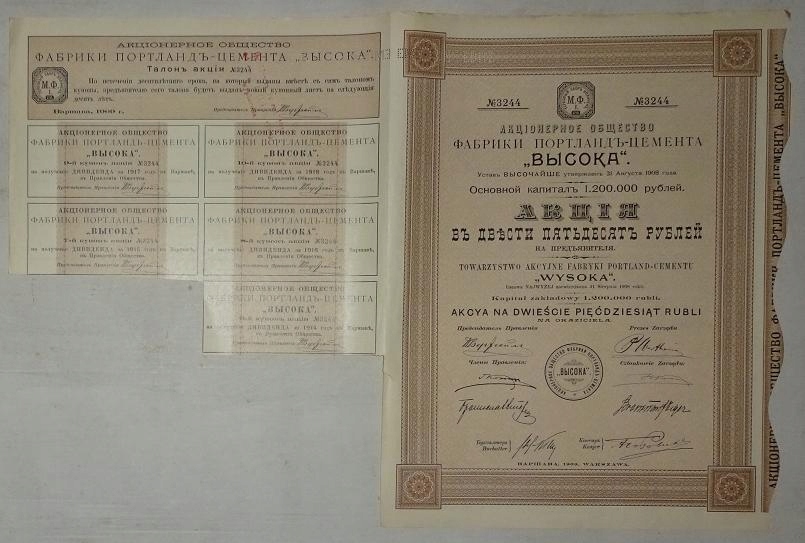 АКЦІОНЕРНОЕ ОБЩЕСТВО
ФАБРИКИ ПОРТЛАНДЪ-ЦЕМЕНТА „ВЫСОКА".
Талонъ акціи №3244
По истеченіи десятилѣтняго срока, на который выданы вмѣстѣ съ симъ талономъ
купоны, предъявителю сего талона будетъ выданъ новый купонный листъ на слѣдующія
десять лѣтъ.
Варшава, 1909 г.
Предсѣдатель Правленія
АКЦІОНЕРНОЕ ОБЩЕСТВО
ФАБРИКИ ПОРТЛАНДЪ-ЦЕМЕНТА
„ВЫСОКА".
9-й купонъ акціи №3244
на полученіе ДИВИДЕНДА за 1917 г. въ Варшавѣ,
въ Правленіи Общества.
Предсѣдатель Правленія
АКЦІОНЕРНОЕ ОБЩЕСТВО
ФАБРИКИ ПОРТЛАНДЪ-ЦЕМЕНТА
„ВЫСОКА".
10-й купонъ акціи №3244
на полученіе ДИВИДЕНДА за 1918 г. въ Варшавѣ,
въ Правленіи Общества.
Предсѣдатель Правленія
АКЦІОНЕРНОЕ ОБЩЕСТВО
ФАБРИКИ ПОРТЛАНДЪ-ЦЕМЕНТА
„ВЫСОКА".
7-й купонъ акціи №3244
на полученіе ДИВИДЕНДА за 1915 г. въ Варшавѣ,
въ Правленіи Общества.
Предсѣдатель Правленія
АКЦІОНЕРНОЕ ОБЩЕСТВО
ФАБРИКИ ПОРТЛАНДЪ-ЦЕМЕНТА
„ВЫСОКА".
8-й купонъ акціи №3244
на полученіе ДИВИДЕНДА за 1916 г. въ Варшавѣ,
въ Правленіи Общества.
Предсѣдатель Правленія
АКЦІОНЕРНОЕ ОБЩЕСТВО
ФАБРИКИ ПОРТЛАНДЪ-ЦЕМЕНТА
„ВЫСОКА".
6-й купонъ акціи №3244
на полученіе ДИВИДЕНДА за 1914 г. въ Варшавѣ,
въ Правленіи Общества.
Предсѣдатель Правленія
№3244
М.Ф.
№3244
АКЦІОНЕРНОЕ ОБЩЕСТВО
ФАБРИКИ ПОРТЛАНДЪ-ЦЕМЕНТА
„ВЫСОКА".
Уставъ ВЫСОЧАЙШЕ утвержденъ 31 Августа 1908 года
Основной капиталъ 1.200.000 рублей.
АКЦІЯ
ВЪ ДВѢСТИ ПЯТЬДЕСЯТЪ РУБЛЕЙ
НА ПРЕДЪЯВИТЕЛЯ.
TOWARZYSTWO AKCYJNE FABRYKI PORTLAND-CEMENTU
„WYSOKA".
Ustawa NAJWYŻEJ zatwierdzona 31 Sierpnia 1908 roku.
Kapitał zakładowy 1,200.000 rubli.
AKCYA NA DWIEŚCIE PIĘĆDZIESIĄT RUBLI
NA OKAZICIELA.
Предсѣдатель Правленія
Prezes Zarządu
Члены Правленія:
Członkowie Zarządu:
АКЦІОНЕРНОЕ ОБЩЕСТВО ФАБРИКИ ПОРТЛАНДЪ-ЦЕМЕНТА
„ВЫСОКА"
Бухгалтеръ
Buchalter
Кассиръ
Kasjer
ВАРШАВА, 1909, WARSZAWA.
АКЦІОНЕРНОЕ ОБЩЕСТВО ФАБРИКИ ПОРТЛАНДЪ-ЦЕМЕНТА „ВЫСОКА"